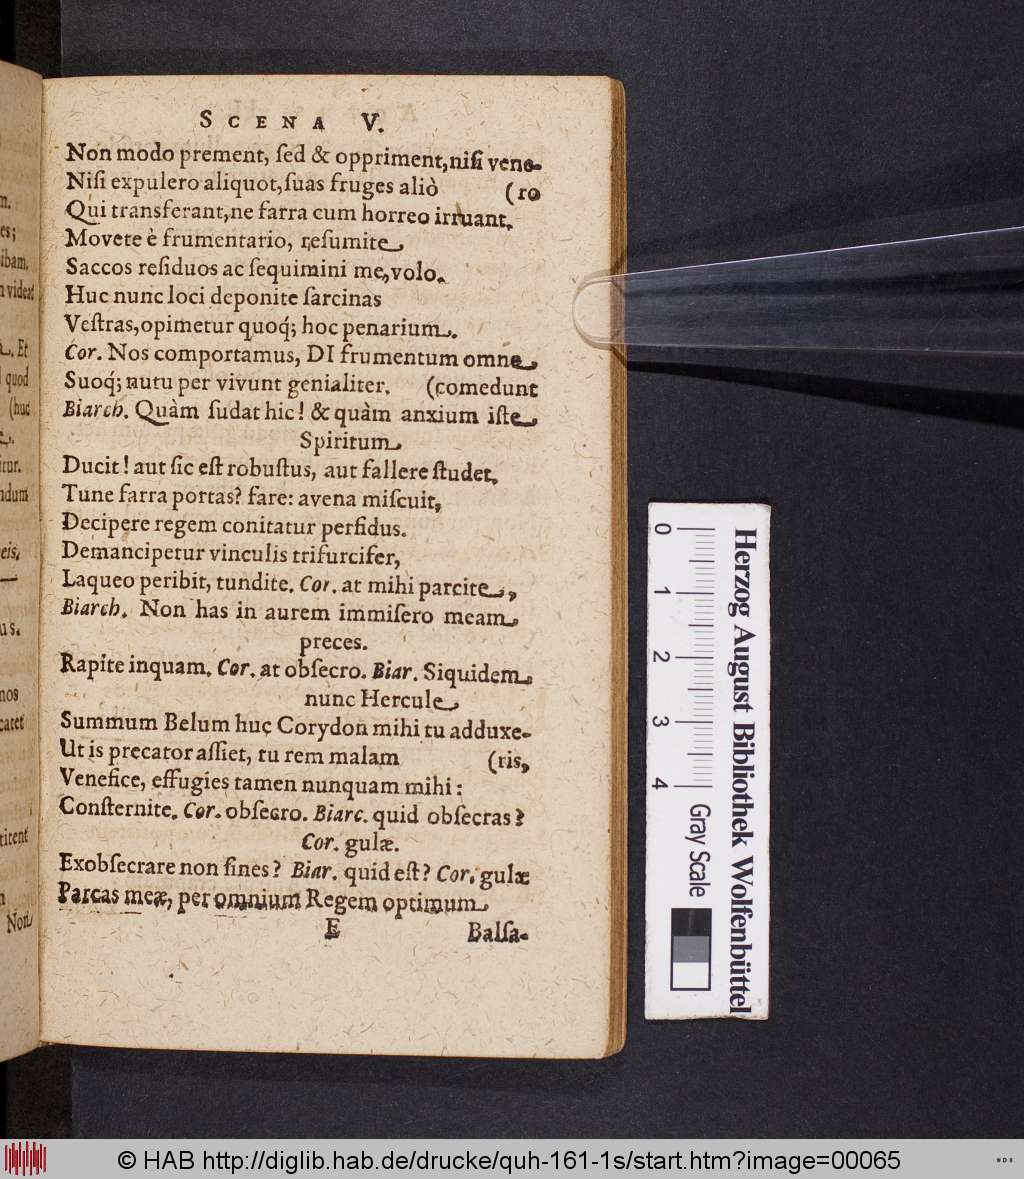 n.
es;
ibam.
n videat
. Et
quod
(huc
itur.
ndum
eis.
us.
nos
catet
titent
Non
SCENA V.
Non modo prement, ſed & oppriment, niſi veno-
Niſi expulero aliquot, ſuas fruges aliò (ro
Qui transferant, ne farra cum horreo irruant.
Movete è frumentario, reſumite
Saccos reſiduos ac ſequimini me, volo.
Huc nunc loci deponite ſarcinas
Veſtras, opimetur quoq́; hoc penarium.
Cor. Nos comportamus, DI frumentum omne
Suoq́; nutu per vivunt genialiter. (comedunt
Biarch. Quàm ſudat hic! & quàm anxium iſte
Spiritum
Ducit! aut ſic eſt robuſtus, aut fallere ſtudet.
Tune farra portas? fare: avena miſcuit,
Decipere regem conitatur perfidus.
Demancipetur vinculis trifurcifer,
Laqueo peribit, tundite. Cor. at mihi parcite,
Biarch. Non has in aurem immiſero meam
preces.
Rapite inquam. Cor. at obſecro. Biar. Siquidem
nunc Hercule
Summum Belum huc Corydon mihi tu adduxe-
Ut is precator aſſiet, tu rem malam (ris,
Venefice, effugies tamen nunquam mihi:
Conſternite. Cor. obſecro. Biarc. quid obſecras?
Cor. gulæ.
Exobſecrare non ſines? Biar. quid eſt? Cor. gulæ
Parcas meæ, per omnium Regem optimum
E Balſa-
0 1 2 3 4
Gray Scale
Herzog August Bibliothek Wolfenbüttel
© HAB http://diglib.hab.de/drucke/quh-161-1s/start.htm?image=00065